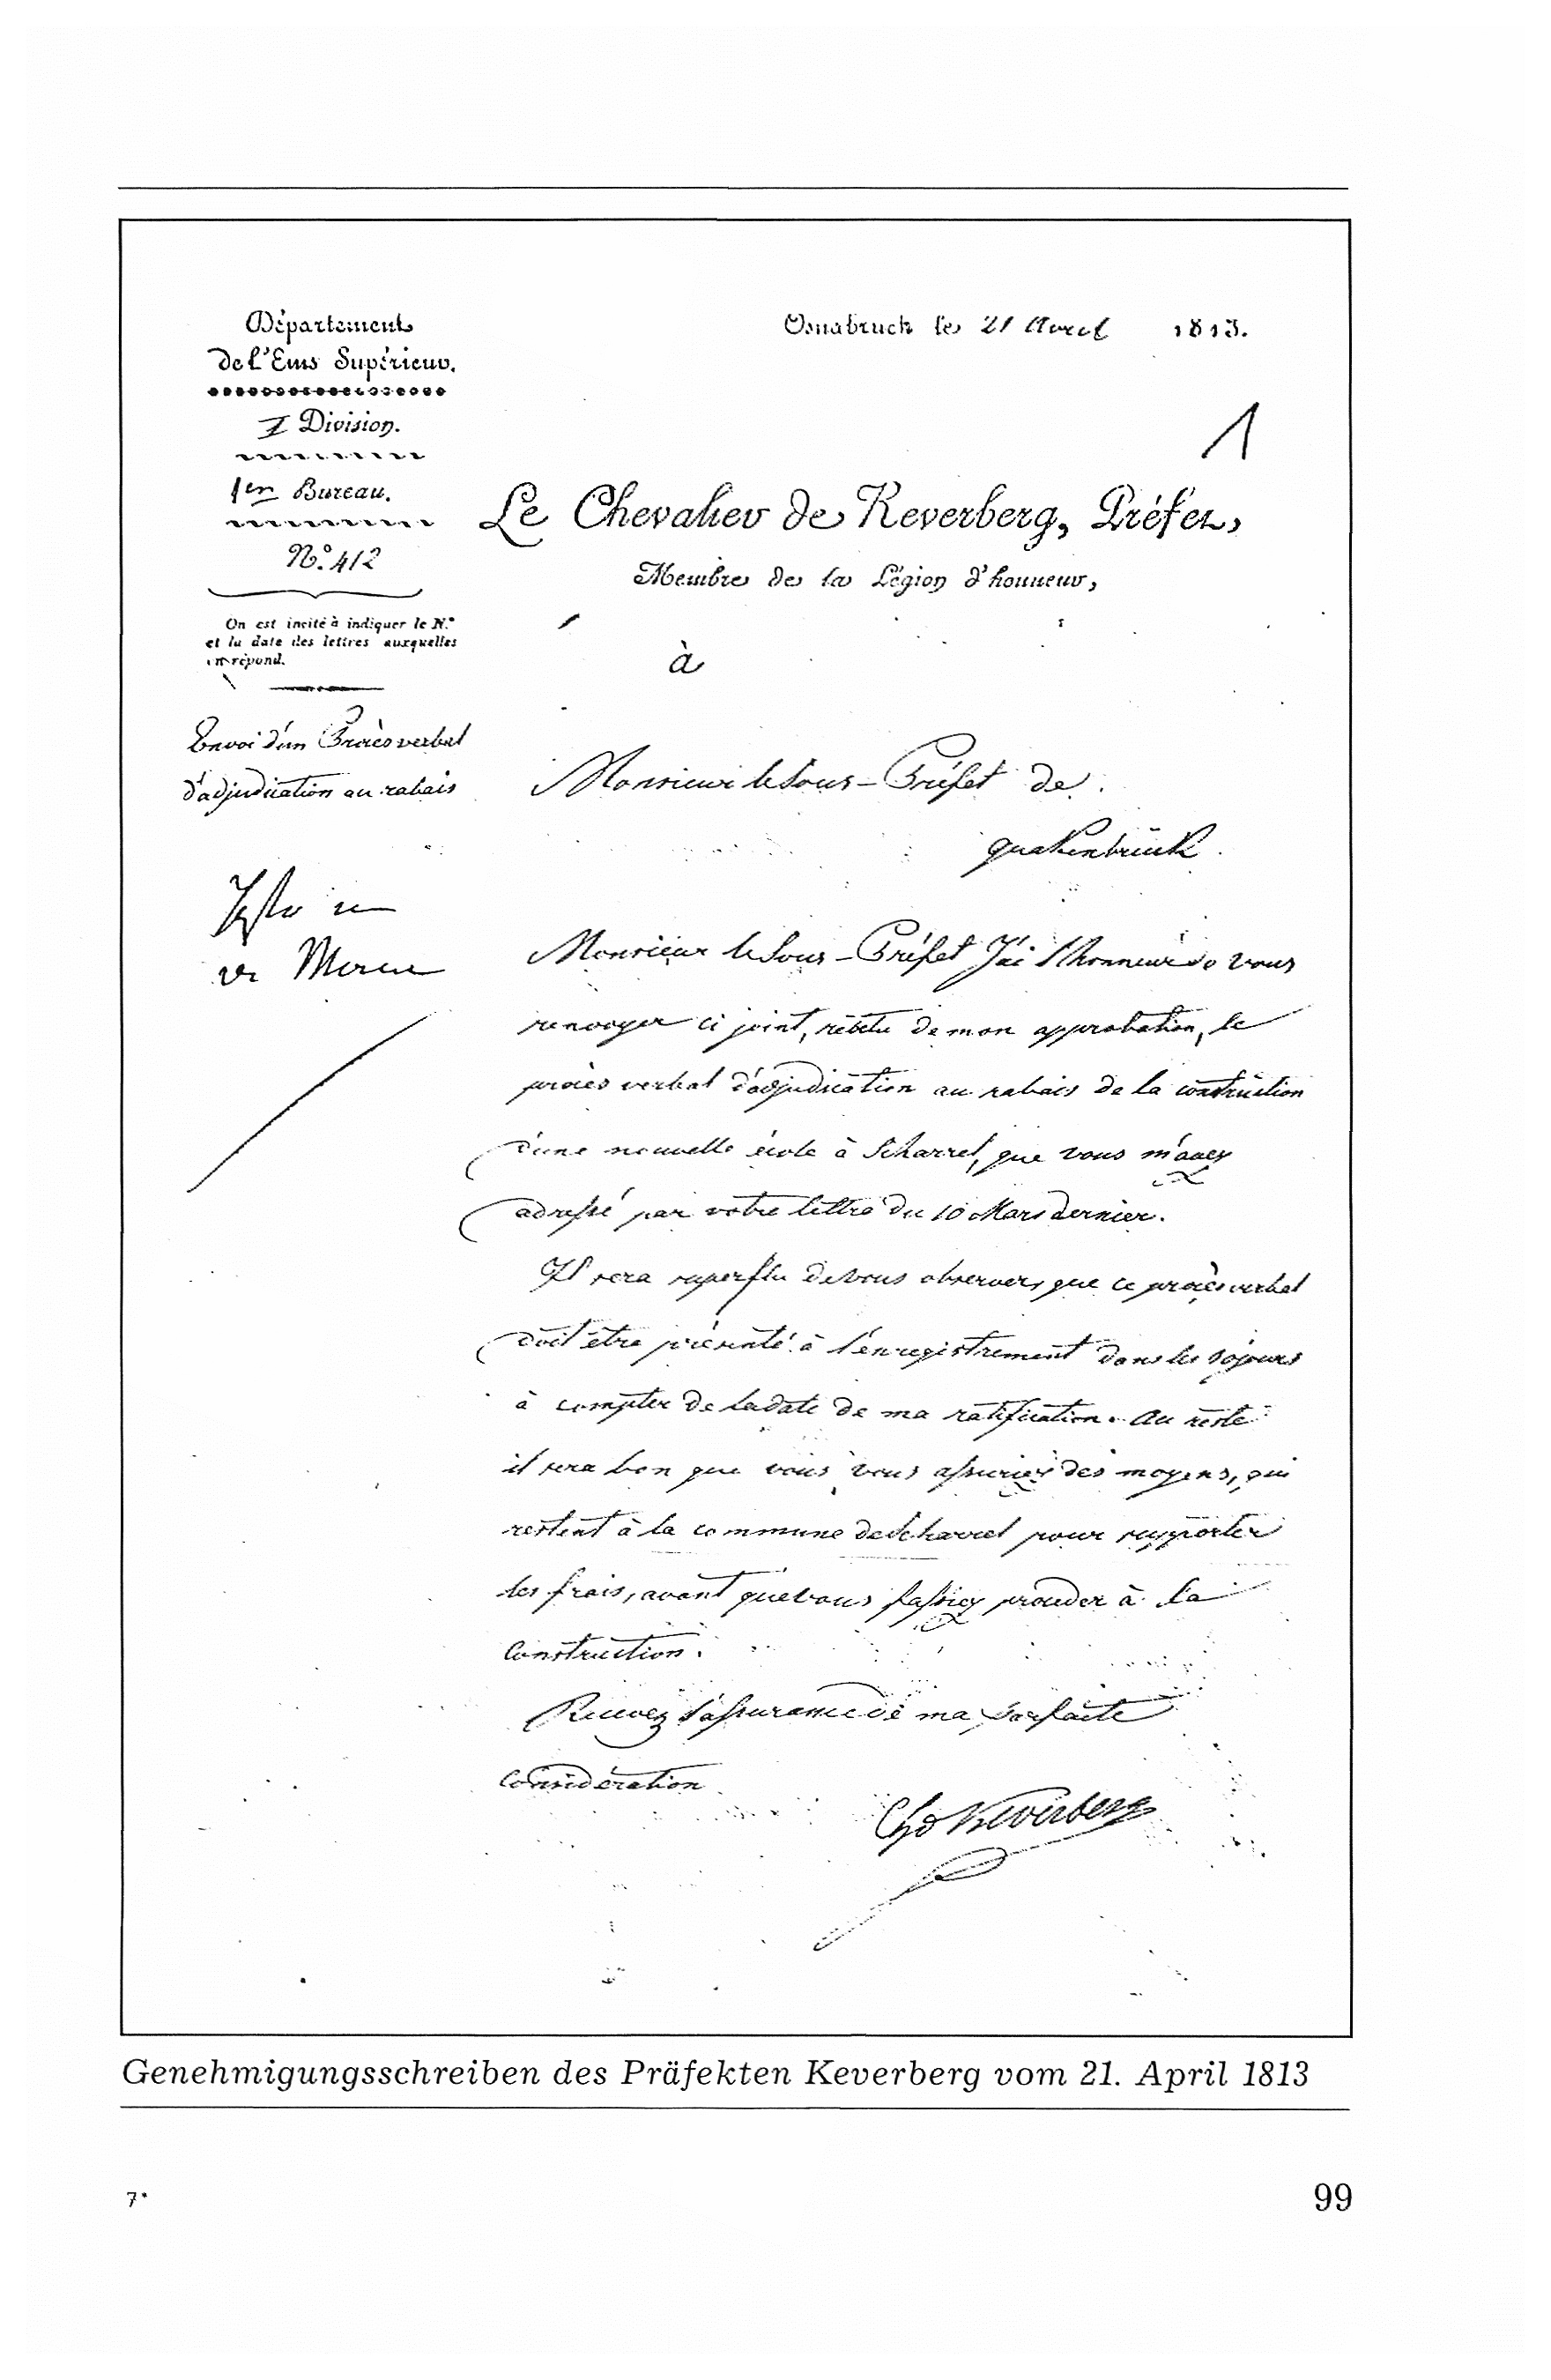 Département
de l'Ems Supérieur.
I Division.
1er Bureau.
N.° 412
On est invité à indiquer le N.°
et la date des lettres auxquelles
on répond.
Envoi d'un Procès verbal
d'adjudication au rabais
Osnabruck le 21 Avril 1813.
1
Le Chevalier de Keverberg, Préfet,
Membre de la Légion d'honneur,
à
Monsieur le Sous-Préfet de
quakenbrück.
Monsieur le Sous-Préfet J'ai l'honneur de vous
renvoyer ci joint, rêvetu de mon approbation, le
procès verbal d'adjudication au rabais de la construction
d'une nouvelle école à Scharrel, que vous m'avez
adressé par votre lettre du 10 Mars dernier.
Il sera superflu de vous observer, que ce procès verbal
doit être présenté à l'enregistrement dans les 20 jours
à compter de la date de ma ratification. Au reste
il sera bon que vous vous assuriez des moyens, qui
restent à la commune de Scharrel pour supporter
les frais, avant que vous fassiez procéder à la
construction.
Recevez l'assurance de ma parfaite
considération
Ch de Keverberg
Genehmigungsschreiben des Präfekten Keverberg vom 21. April 1813
7*
99